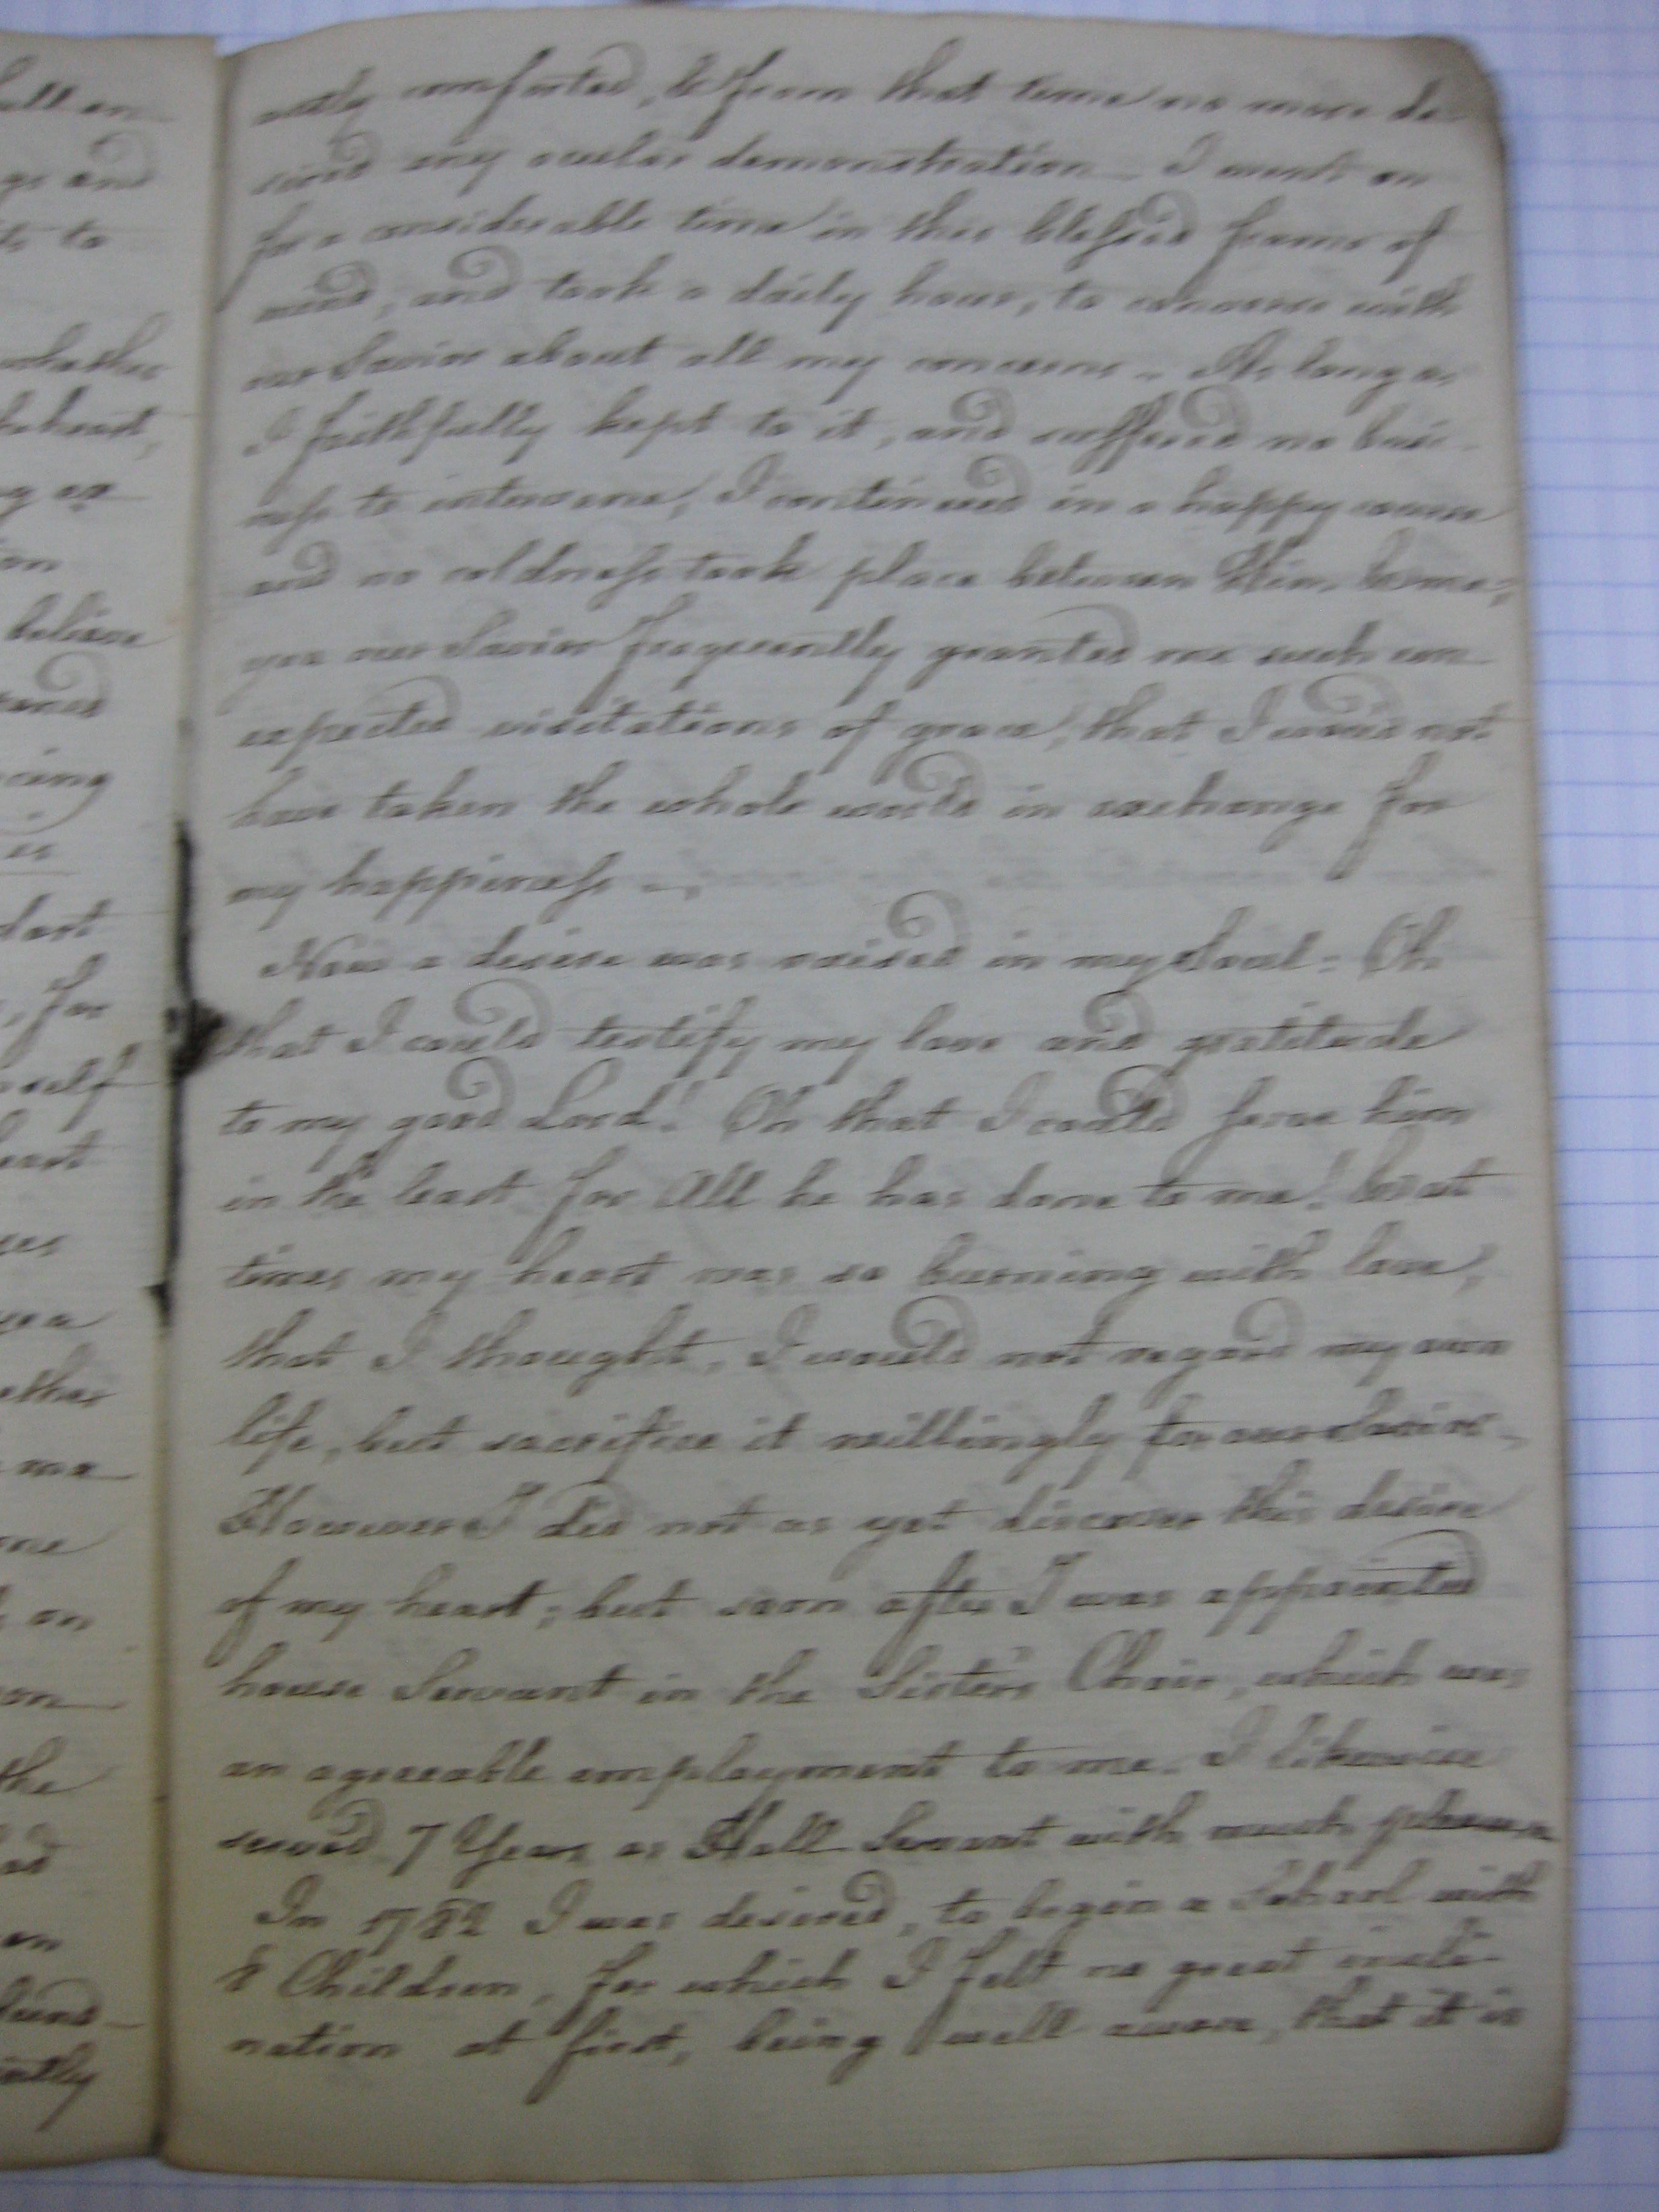 ectly comforted, & from that time no more de-
sired any ocular demonstration. I went on
for a considerable time in this blessed frame of
mind, and took a daily hour, to converse with
our Savior about all my concerns. As long as
I faithfully kept to it, and suffered no busi-
ness to intervene, I continued in a happy course
and no coldness took place between Him & me;
yea our Savior frequently granted me such un-
expected visitations of grace, that I would not
have taken the whole world in exchange for
my happiness.
Now a desire was raised in my Soul: Oh
that I could testify my love and gratitude
to my good Lord! Oh that I could serve him
in the least for All he has done to me! & at
times my heart was so burning with love,
that I thought, I would not regard my own
life, but sacrifice it willingly for our Savior.
However I did not as yet discover this desire
of my heart; but soon after I was appointed
house Servant in the Sister's Choir, which was
an agreeable employment to me. I likewise
served 7 Years as Hall Servant with much pleasure
In 1782 I was desired, to begin a School with
8 Children, for which I felt no great incli-
nation at first, being well aware, that it is